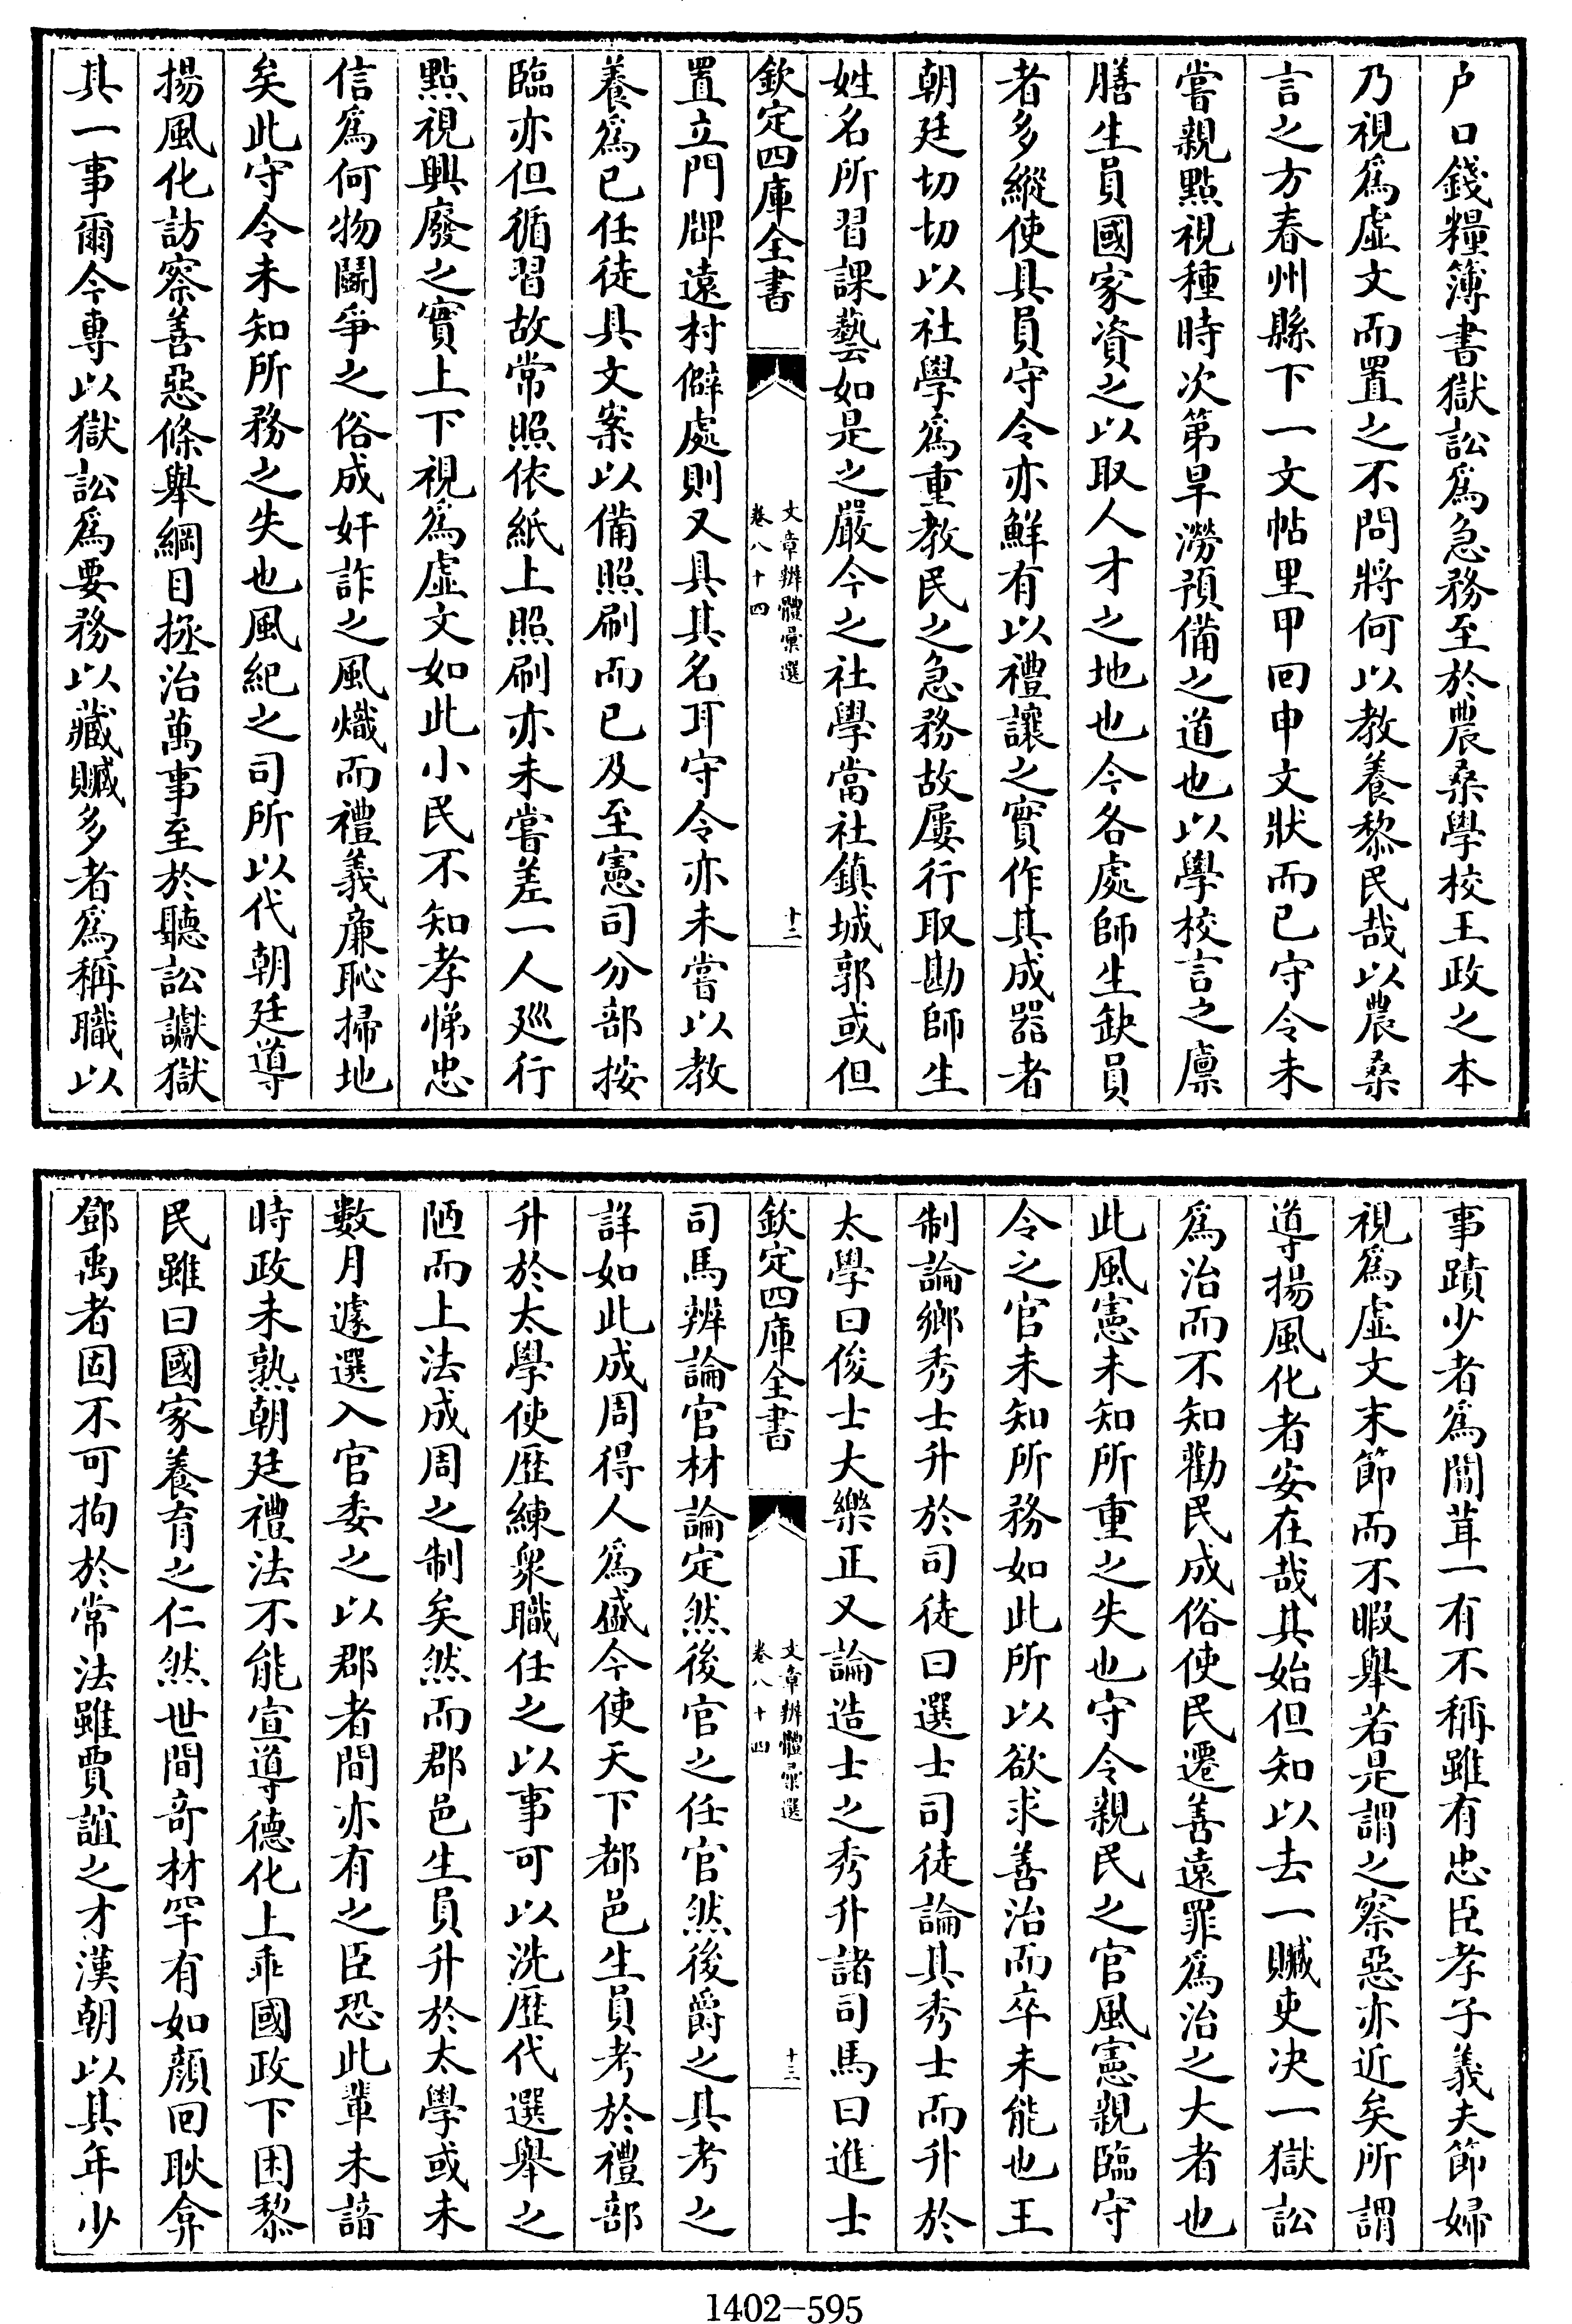 户口錢糧簿書獄訟爲急務至於農桑學校王政之本
乃視爲虛文而置之不問將何以教養黎民哉以農桑
言之方春州縣下一文帖里甲回申文狀而已守令未
嘗親點視種時次第旱澇預備之道也以學校言之廪
膳生員國家資之以取人才之地也今各處師生缺員
者多縱使具員守令亦鮮有以禮讓之實作其成器者
朝廷切切以社學爲重教民之急務故屢行取勘師生
姓名所習課藝如是之嚴今之社學當社鎮城郭或但
欽定四庫全書
文章辨體彙選
卷八十四
十二
置立門牌遠村僻處則又具其名耳守令亦未嘗以教
養爲已任徒具文案以備照刷而已及至憲司分部按
臨亦但循習故常照依紙上照刷亦未嘗差一人廵行
點視興廢之實上下視爲虛文如此小民不知孝悌忠
信爲何物鬬爭之俗成奸詐之風熾而禮義廉恥掃地
矣此守令未知所務之失也風紀之司所以代朝廷導
揚風化訪察善惡條舉綱目拯治萬事至於聽訟讞獄
其一事爾今專以獄訟爲要務以藏贓多者爲稱職以
事蹟少者爲闒茸一有不稱雖有忠臣孝子義夫節婦
視爲虛文末節而不暇舉若是謂之察惡亦近矣所謂
導揚風化者安在哉其始但知以去一贓吏决一獄訟
爲治而不知勸民成俗使民遷善遠罪爲治之大者也
此風憲未知所重之失也守令親民之官風憲親臨守
令之官未知所務如此所以欲求善治而卒未能也王
制論鄉秀士升於司徒曰選士司徒論其秀士而升於
太學曰俊士大樂正又論造士之秀升諸司馬曰進士
欽定四庫全書
文章辨體彙選
卷八十四
十三
司馬辨論官材論定然後官之任官然後爵之其考之
詳如此成周得人爲盛今使天下都邑生員考於禮部
升於太學使歴練衆職任之以事可以洗歴代選舉之
陋而上法成周之制矣然而郡邑生員升於太學或未
數月遽選入官委之以郡者間亦有之臣恐此輩未諳
時政未熟朝廷禮法不能宣導德化上乖國政下困黎
民雖曰國家養育之仁然世間竒材罕有如顔回耿弇
鄧禹者固不可拘於常法雖賈誼之才漢朝以其年少
1402-595